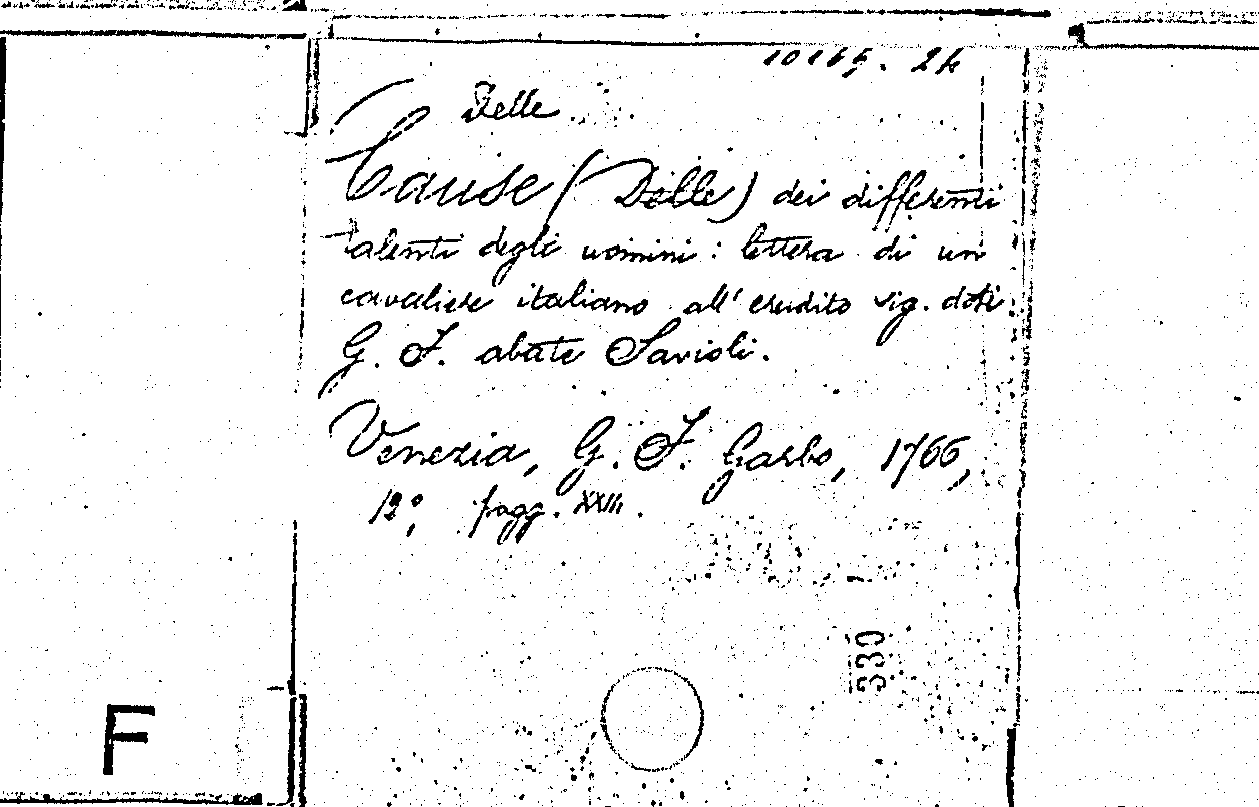 10165. 24
Delle
Cause (Delle) dei differenti
talenti degli uomini: lettera di un
cavaliere italiano all'erudito sig. dott.
G. F. abate Savioli.
Venezia, G. F. Garbo, 1766,
12°, pagg. XXIII.
330
F